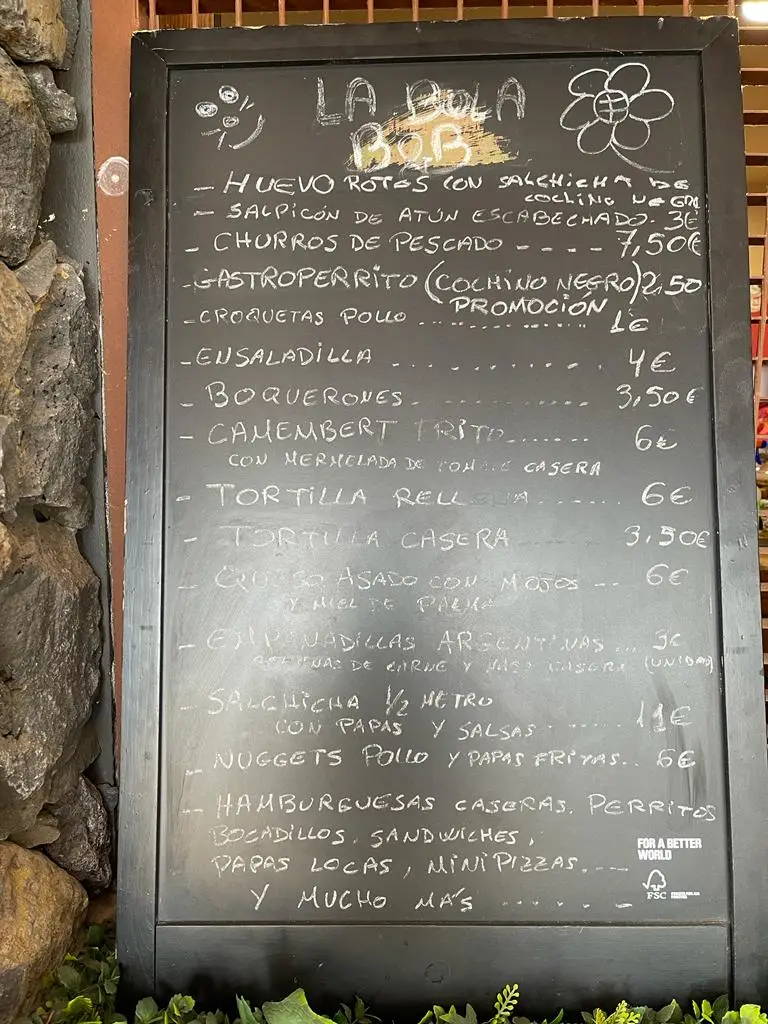 LA BOLA
BOB
- HUEVO ROTOS CON SALCHICHA DE
COCHINO NEGRO
- SALPICÓN DE ATÚN ESCABECHADO. 3€
- CHURROS DE PESCADO - - - - 7,50€
- GASTROPERRITO (COCHINO NEGRO) 2,50
PROMOCIÓN
- CROQUETAS POLLO ............... 1€
- ENSALADILLA ........... 4€
- BOQUERONES ........ 3,50€
- CAMEMBERT FRITO ....... 6€
CON MERMELADA DE TOMATE CASERA
- TORTILLA RELLENA ...... 6€
- TORTILLA CASERA ...... 3,50€
- QUESO ASADO CON MOJOS -- 6€
Y MIEL DE PALMA
- EMPANADILLAS ARGENTINAS ... 3€
RELLENAS DE CARNE Y MASA CASERA (UNIDAD)
- SALCHICHA 1/2 METRO
CON PAPAS Y SALSAS ....... 11€
- NUGGETS POLLO Y PAPAS FRITAS.. 6€
- HAMBURGUESAS CASERAS. PERRITOS
BOCADILLOS, SANDWICHES,
PAPAS LOCAS, MINI PIZZAS. ---
Y MUCHO MÁS - . . . . . -
FOR A BETTER
WORLD
FSC